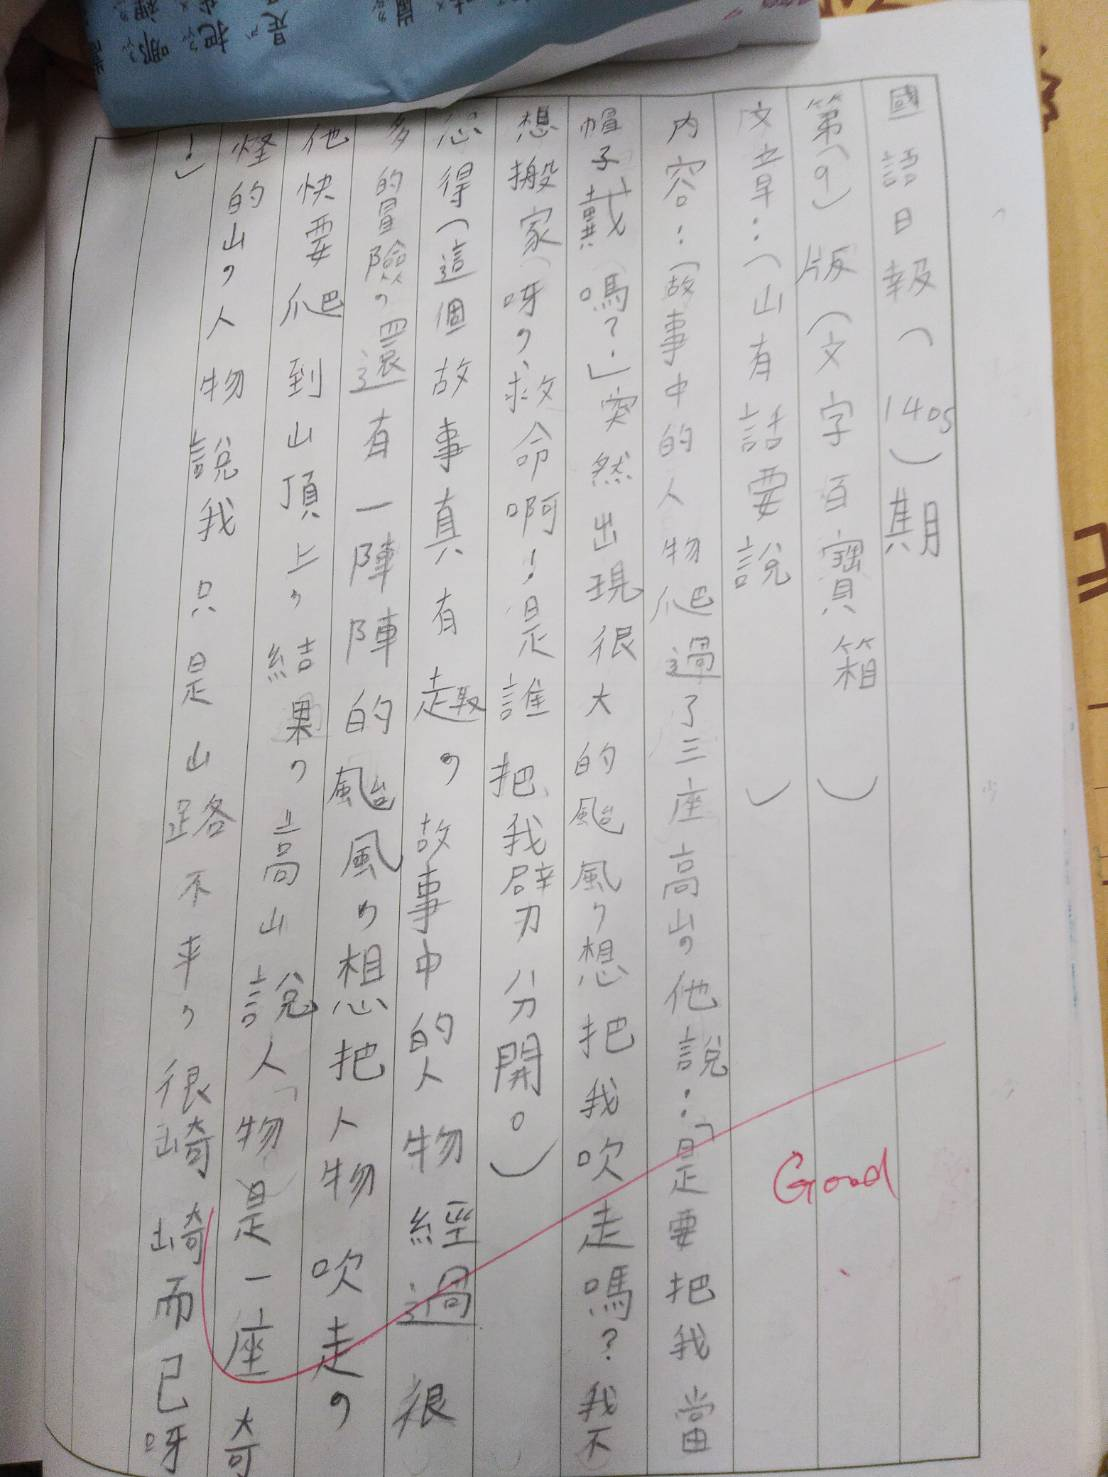 國語日報（1405）期
第（9）版（文字百寶箱）
文章：（山有話要說）
內容：（故事中的人物爬過了三座高山，他說：「是要把我當
帽子戴嗎？」突然出現很大的颱風，想把我吹走嗎？我不
想搬家呀，救命啊！是誰把我劈分開。）
心得（這個故事真有趣，故事中的人物經過很
多的冒險，還有一陣陣的颱風，想把人物吹走，
他快要爬到山頂上，結果，高山說人「物是一座奇
怪的山，人物說我只是山路不平，很崎崎而已呀
！」
Good